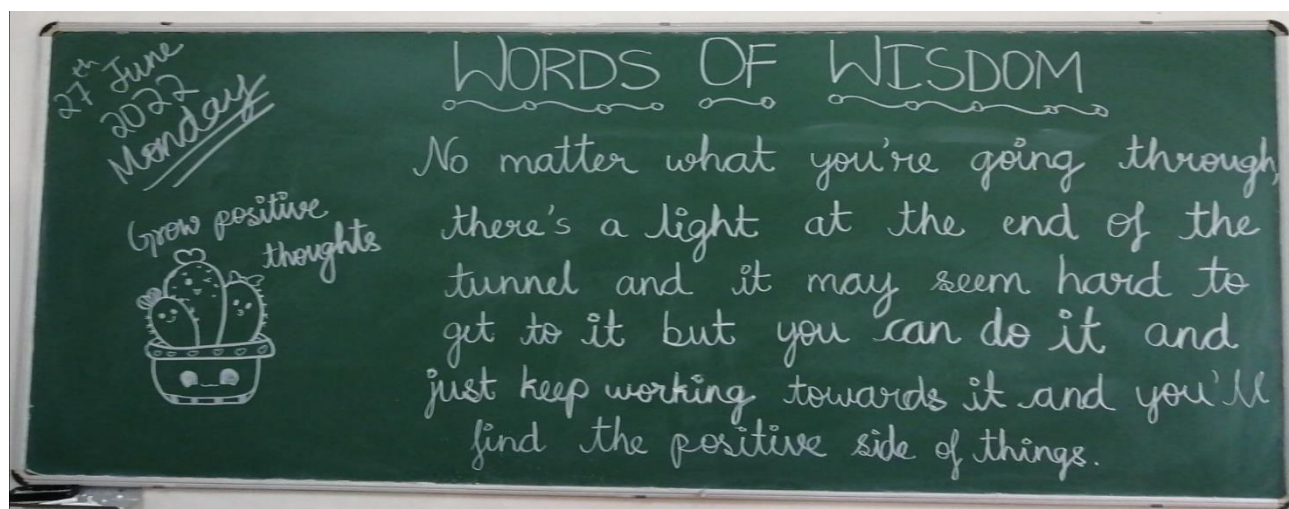 27th June
2022
Monday
Grow positive
thoughts
WORDS OF WISDOM
No matter what you're going through,
there's a light at the end of the
tunnel and it may seem hard to
get to it but you can do it and
just keep working towards it and you'll
find the positive side of things.